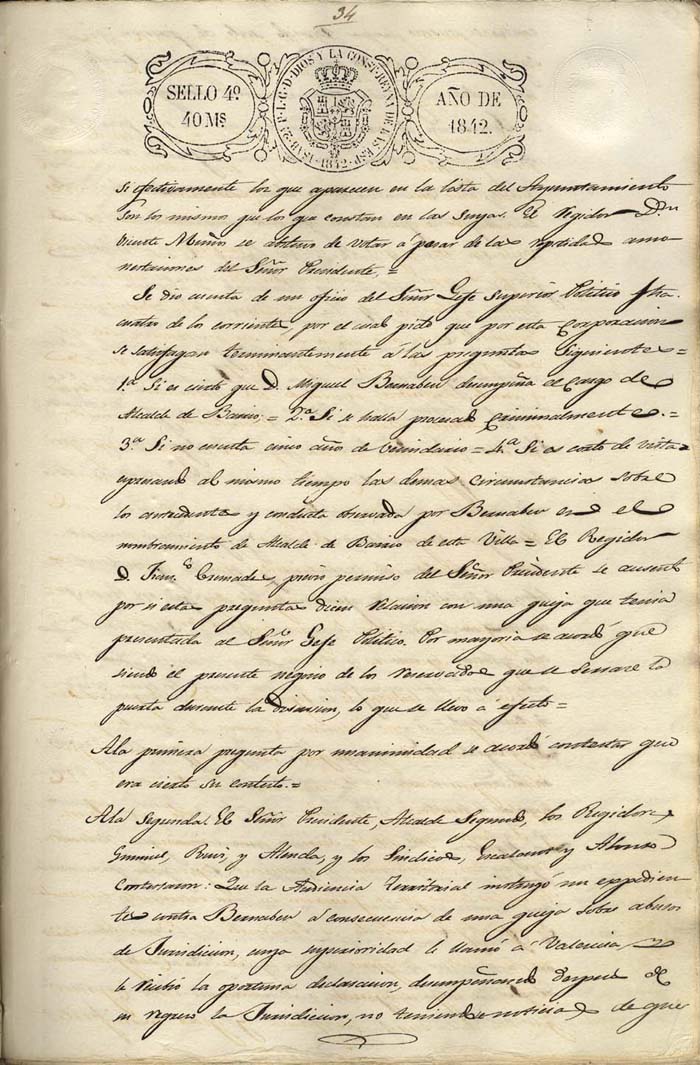 34
SELLO 4º
40 Ms
ISAB. 2ª P. L. G. D. DIOS Y LA CONST. REYNA DE LAS ESP. 1842
AÑO DE
1842.
si efectivamente los que aparecen en la lista del Ayuntamiento
son los mismos que los que constan en las suyas. El Regidor Don
Vicente se abstuvo de votar á pesar de las repetidas amo
nestaciones del Señor Presidente, =
Se dio cuenta de un oficio del Señor Gefe Superior Politico fha.
cuatro de los corrientes, por el cual pide que por esta Corporacion
se satisfagan terminantemente á las preguntas siguientes =
1.ª Si es cierto que D. Miguel Bernabeu desempeña el cargo de
Alcalde de Barrio; = 2.ª Si se halla procesado Criminalmente. =
3.ª Si no cuenta cinco años de vecindario = 4.ª Si es corto de vista
espresando al mismo tiempo las demas circunstancias sobre
los antecedentes y conducta observada por Bernabeu en el
nombramiento de Alcalde de Barrio de esta Villa = El Regidor
D. Fran.co Cremades previo permiso del Señor Presidente se ausentó
por si esta pregunta dicen relacion con una queja que tenia
presentada al Señor Gefe Politico. Por mayoria se acordó que
siendo el presente negocio de los reservados que se cerrase la
puerta durante la discusion, lo que se llevo a efecto =
A la primera pregunta por unanimidad se acordó contestar que
era cierto su contesto. =
A la Segunda. El Señor Presidente, Alcalde Segundo, los Regidores
Ruiz, y Alenda, y los Sindicos, Escolano y Alonso
Contestaron: Que la Audiencia Territorial instruyó un expedien
te contra Bernabeu á consecuencia de una queja sobre abusos
de Jurisdicion, cuya superioridad le llamó á Valencia
le recibió la oportuna declaracion, desempeñando despues de
su regreso la Jurisdicion, no teniendo noticias de que